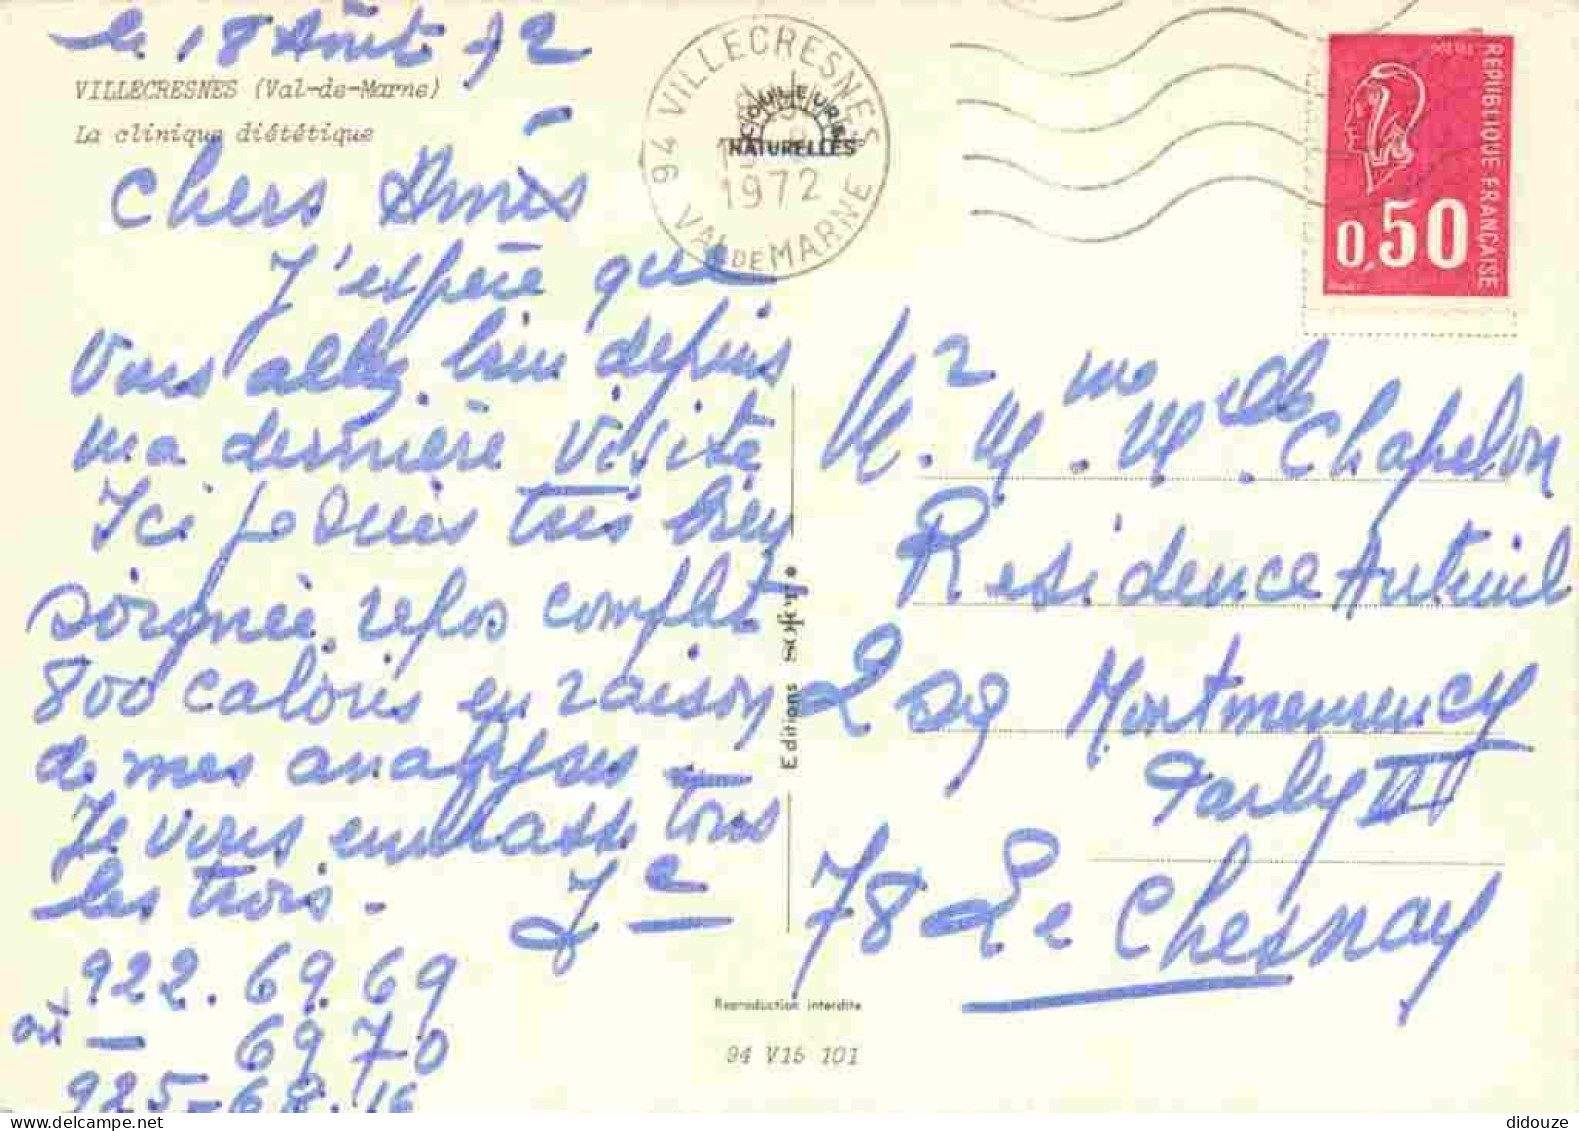 le 18 Août 72
VILLECRESNES (Val-de-Marne)
La clinique diététique
Chers Amis
J'espère que
vous allez bien depuis
ma dernière visite
Ici je suis très bien
soignée, repos complet
800 calories en raison
de mes analyses -
Je vous embrasse tous
les trois -
922.69.69
où — 69 70
925-68.16
94 VILLECRESNES
1972
VAL DE MARNE
COULEURS
NATURELLES
REPUBLIQUE FRANÇAISE
0,50
Mr. Mme. Melle. Chapelon
Residence Auteuil
2 sq Montmorency
Parly III
78 Le Chesnay
Editions sofer
Reproduction interdite
94 V15 101
didouze